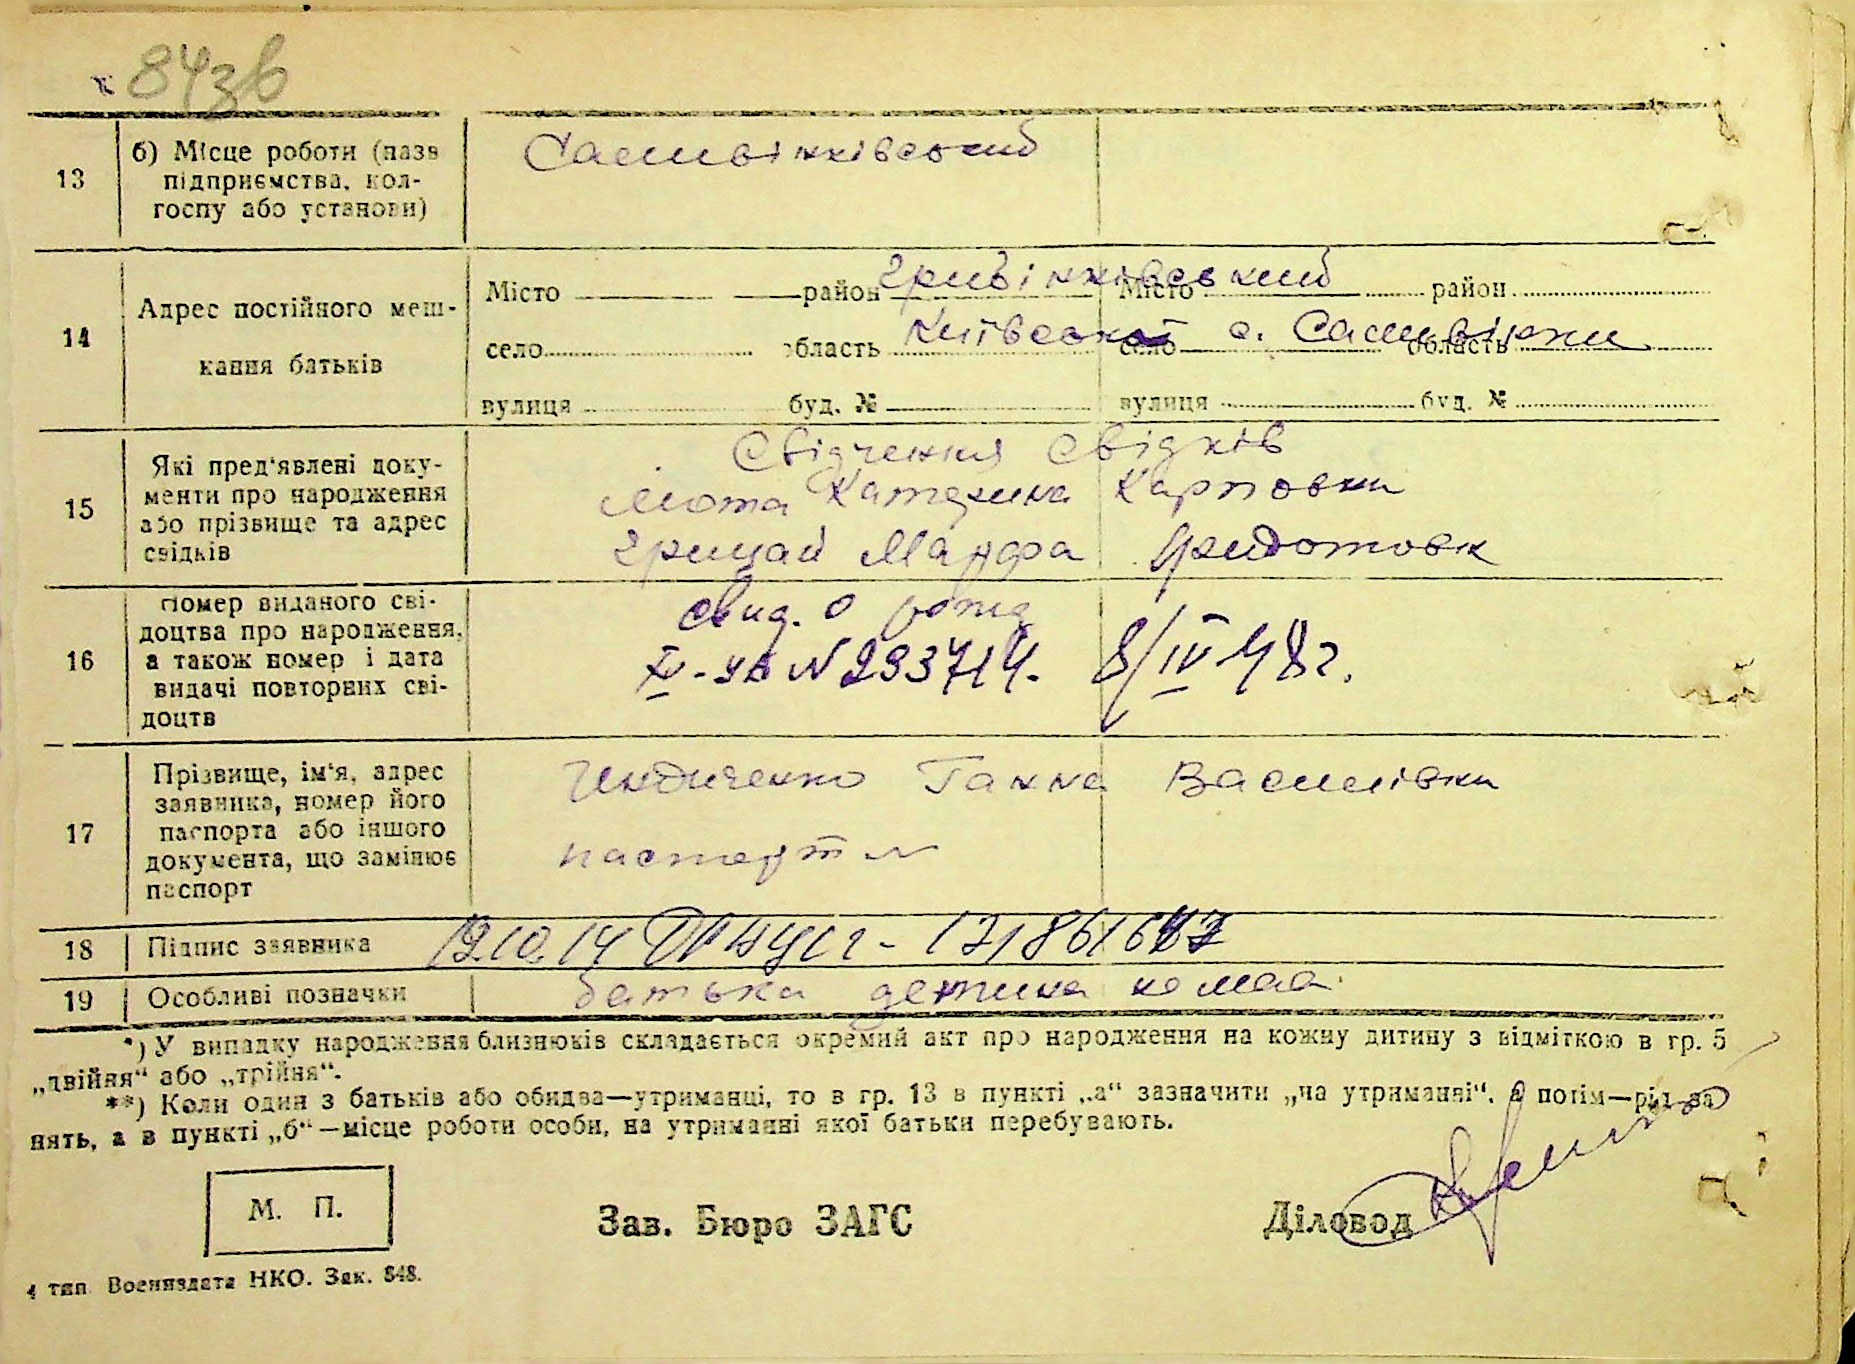 84зв
13
б) Місце роботи (назв
підприємства, кол-
госпу або установи)
Сашвінківський
14
Адрес постійного меш-
кання батьків
Місто район Гребінківський Місто район
село область Київської село с. область
вулиця буд. № вулиця буд. №
15
Які пред'явлені доку-
менти про народження
або прізвище та адрес
свідків
Свідчення свідків
Мота Катерина Карповна
Грицай Марфа
16
Номер виданого сві-
доцтва про народження,
а також номер і дата
видачі повторних сві-
доцтв
свид. о рожд
IV-УБ N 293714. 8/IV 48г.
17
Прізвище, ім'я, адрес
заявника, номер його
паспорта або іншого
документа, що замінює
паспорт
Ганна Василівна
паспорт №
18 Підпис заявника
19.10.14
19 Особливі позначки
батька дитина не має.
*) У випадку народження близнюків складається окремий акт про народження на кожну дитину з відміткою в гр. 5
„двійня“ або „трійня“.
**) Коли один з батьків або обидва—утриманці, то в гр. 13 в пункті „а“ зазначити „на утриманні“, а потім—рід за
нять, а в пункті „б“—місце роботи особи, на утриманні якої батьки перебувають.
М. П.
Зав. Бюро ЗАГС
Діловод
4 тип. Воениздата НКО. Зак. 848.